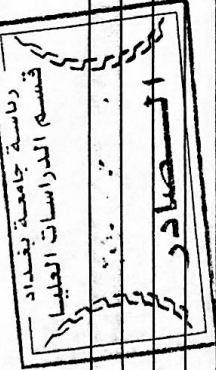 رئاسة جامعة بغداد
قسم الدراسات العليا
الصادر